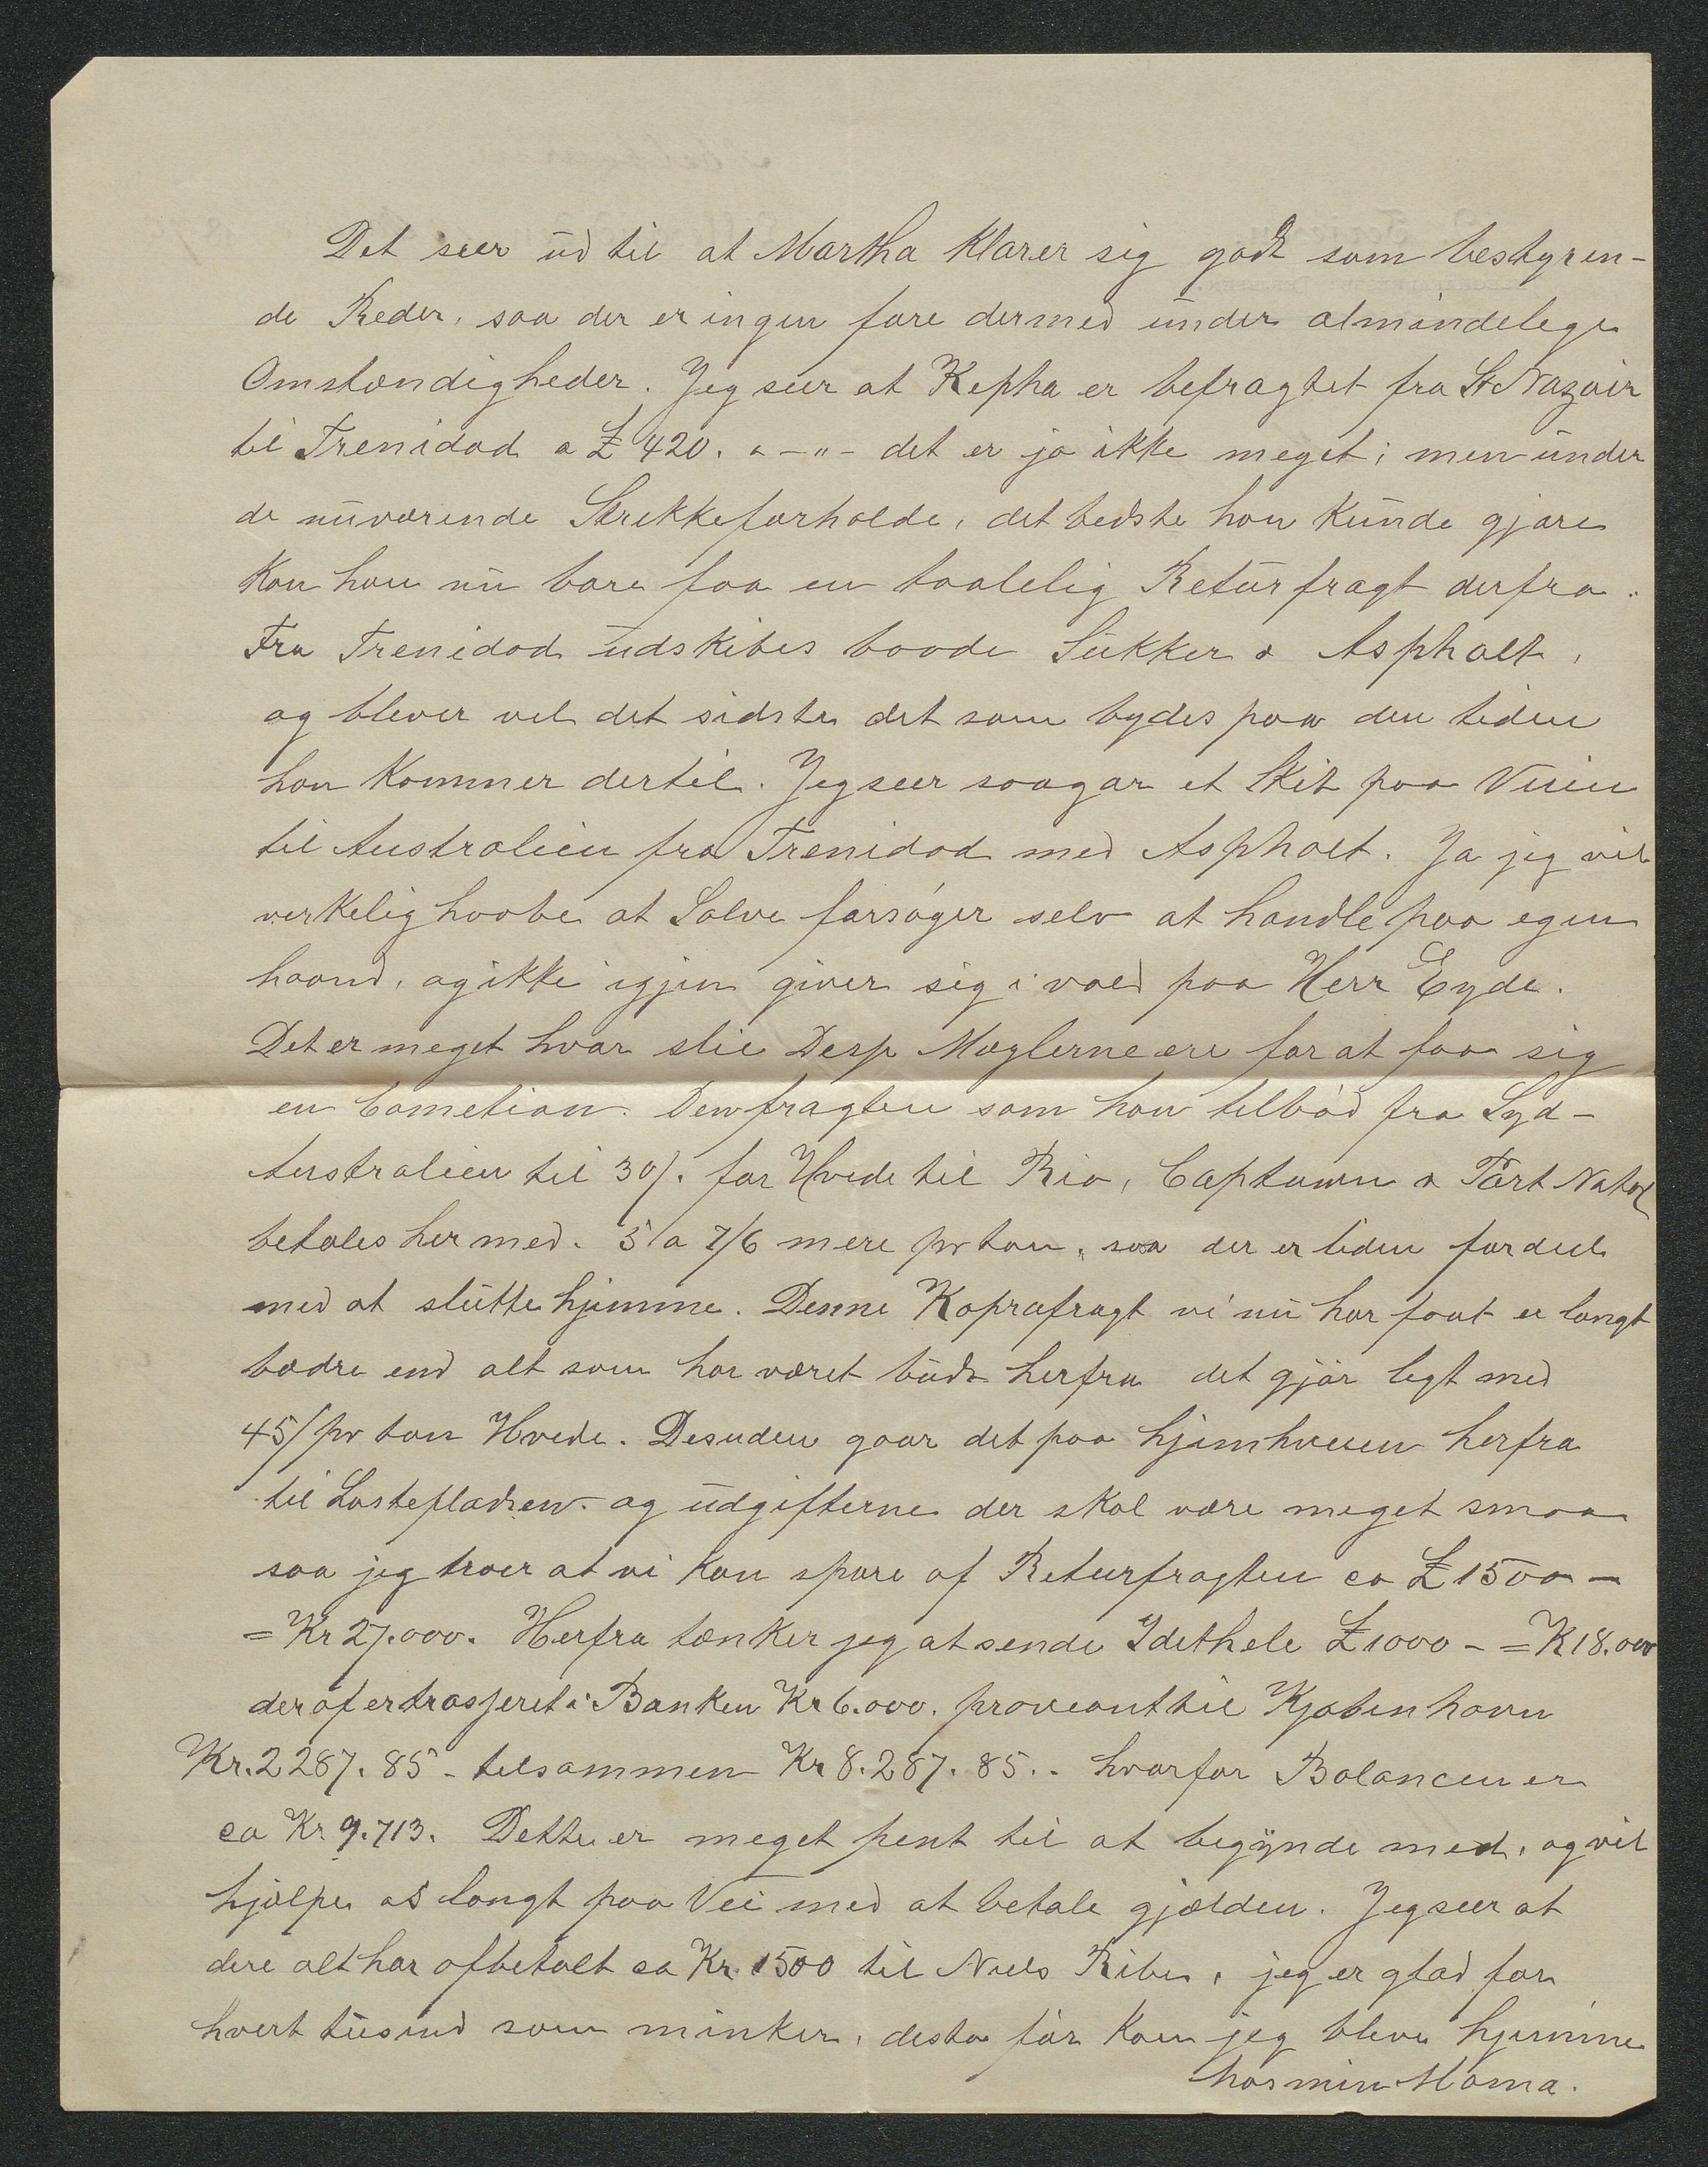 Det seer ud til at Martha Klarer sig godt som bestyren-
de Reder, saa der er ingen fare dermed under almindelege
Omstændigheder. Jeg seer at Kepha er befragtet fra St Nazair
til Trenidad a £ 420. " - " - det er ja ikke meget; men under
de nuværende Strekkeforholde, det bedste han Kunde gjøre
Kan han nu bare faa en taalelig Returfragt derfra.
Fra Trenidad udskibes baade Sukker & Asphalt,
og blever vel det sidste det som bydes paa den tiden
han Kommer dertil. Jeg seer saagar et Skib paa Veien
til Australien fra Trenidad med Asphalt. Ja jeg vil
verkelig haabe at Salve forsøger selv at handle paa egen
haand, og ikke igjen giver sig i vold paa Herr Eyde.
Det er meget hvor slie Desp Mæglerne ere for at faa sig
en Cometion. Den fragten som han tilbød fra Syd-
Australien til 30/. for Hvede til Rio, Captown & Port Natal
betales her med. 5 a 7/6 mere pr ton, saa der er liden fordeel
med at slutte hjemme. Denne Koprafragt vi nu har faat er langt
bædre end alt som har været budt herfra det gjør ligt med
45/ pr ton Hvede. Desuden gaar det paa hjemhveien herfra
til Lastepladsen og udgifterne der skal være meget smaa
saa jeg troer at vi Kan spare af Returfragten ca £ 1500 -
= Kr 27.000. Herfra tænker jeg at sende Idethele £ 1000 - = K 18.000
deraf er trasseret i Banken Kr 6.000. proveant til Kjøbenhavn
Kr. 2287. 85 - tilsammen Kr 8.287. 85. - hvorfor Balancen er
ca Kr 9.713. Dette er meget pent til at begynde med, og vil
hjælpe os langt paa Vei med at betale gjælden. Jeg seer at
dere alt har afbetalt ca Kr. 1500 til Niels Ribe, jeg er glad for
hvert tusind som minker, desto før Kan jeg bleve hjemme
hos min Mama.